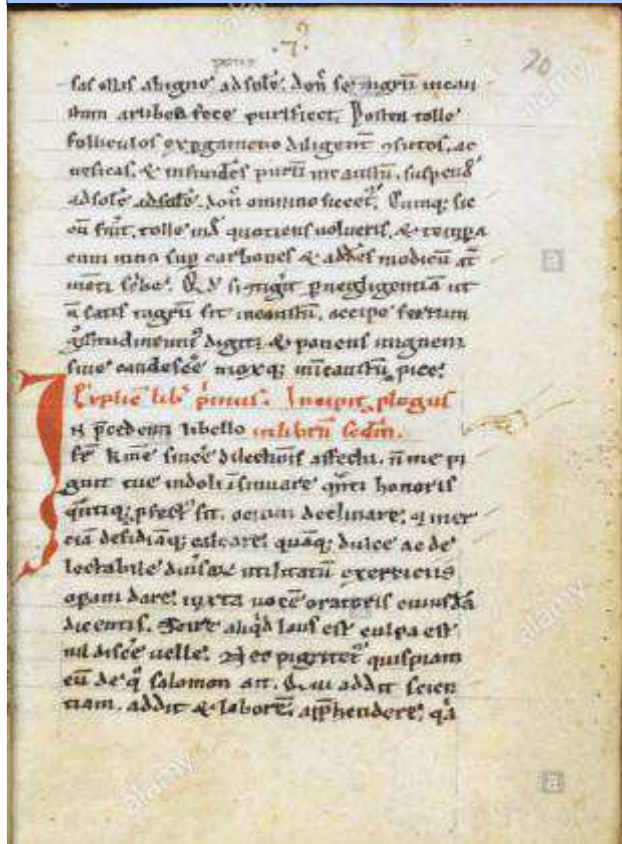 .7.
20
sas ollis abigne', ad sole', don̄ se nigrū incau
stum artibus fece purificet. Postea tolle
folliculos ex pgameno diligent̄ ꝯsutos, ac
uesicas, & infundēs purū incaustū, suspend'
ad solē don̄ omnino siccet'. Cumq; sic
cū fuit, tolle inde quotiens uolueris, & tempa
cum uino sup carbones & addēs modicū at
mēti scbe'. Qd si ꝯtigit p negligentiā ut
n̄ satis nigrū sit incaustū, accipe ferrum
grossitudine uni' digiti & ponens in ignem
sine candescē moxq; in incaustū, pice'.
Explic̄ lib' p̄mus. Incipit plogus
In p̄cedenti libello in librū scd̄m.
fr̄ k̄me' sincē dilectionis affectu, n̄ me pi
guit tue indoli īsinuare, q̄nti honoris
q̄ntiq; pfect' sit, ociuū declinare, & iner
ciā desidiāq; calcare; quāq; dulce ac de
lectabile diuisarꝝ utilitatū exercitiis
opam dare; iuxta uocē oratoris cuiusdā
dicentis. Scire aliq̄d laus est, culpa est
nil discē uelle. Nec pigritet' quispiam
eū de q̄ salomon ait. Qui addit scien
tiam, addit & laborē; app̄hendere; q̄a
alamy
alamy
alamy
alamy
a
a